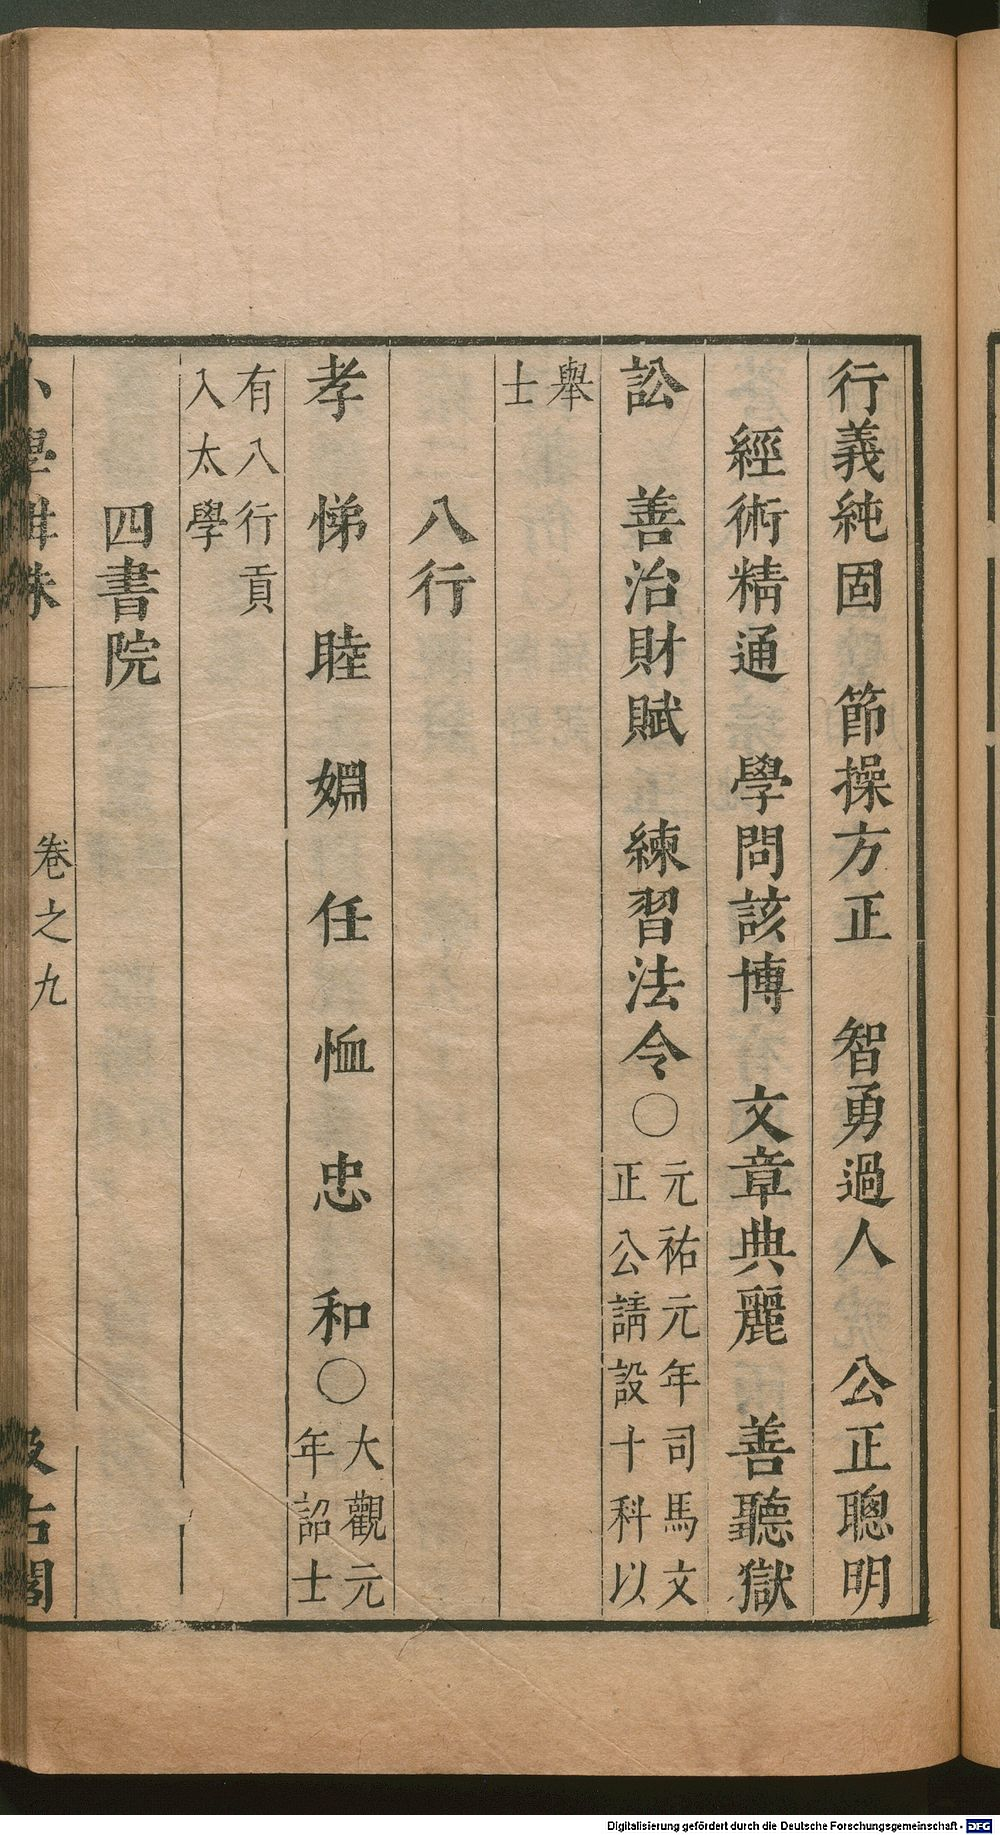 行義純固　節操方正　智勇過人　公正聰明
經術精通　學問該博　文章典麗　善聽獄
訟　善治財賦　練習法令○元祐元年司馬文
正公請設十科以
舉
士
八行
孝　悌　睦　婣　任　恤　忠　和○大觀元
年詔士
有八行貢
入太學
四書院
小學紺珠　卷之九　汲古閣
Digitalisierung gefördert durch die Deutsche Forschungsgemeinschaft - DFG